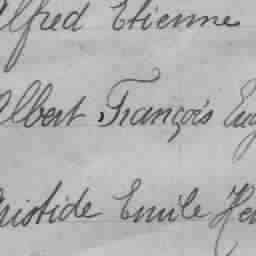 Alfred Etienne
Albert, François Eug
Aristide Emile Hen